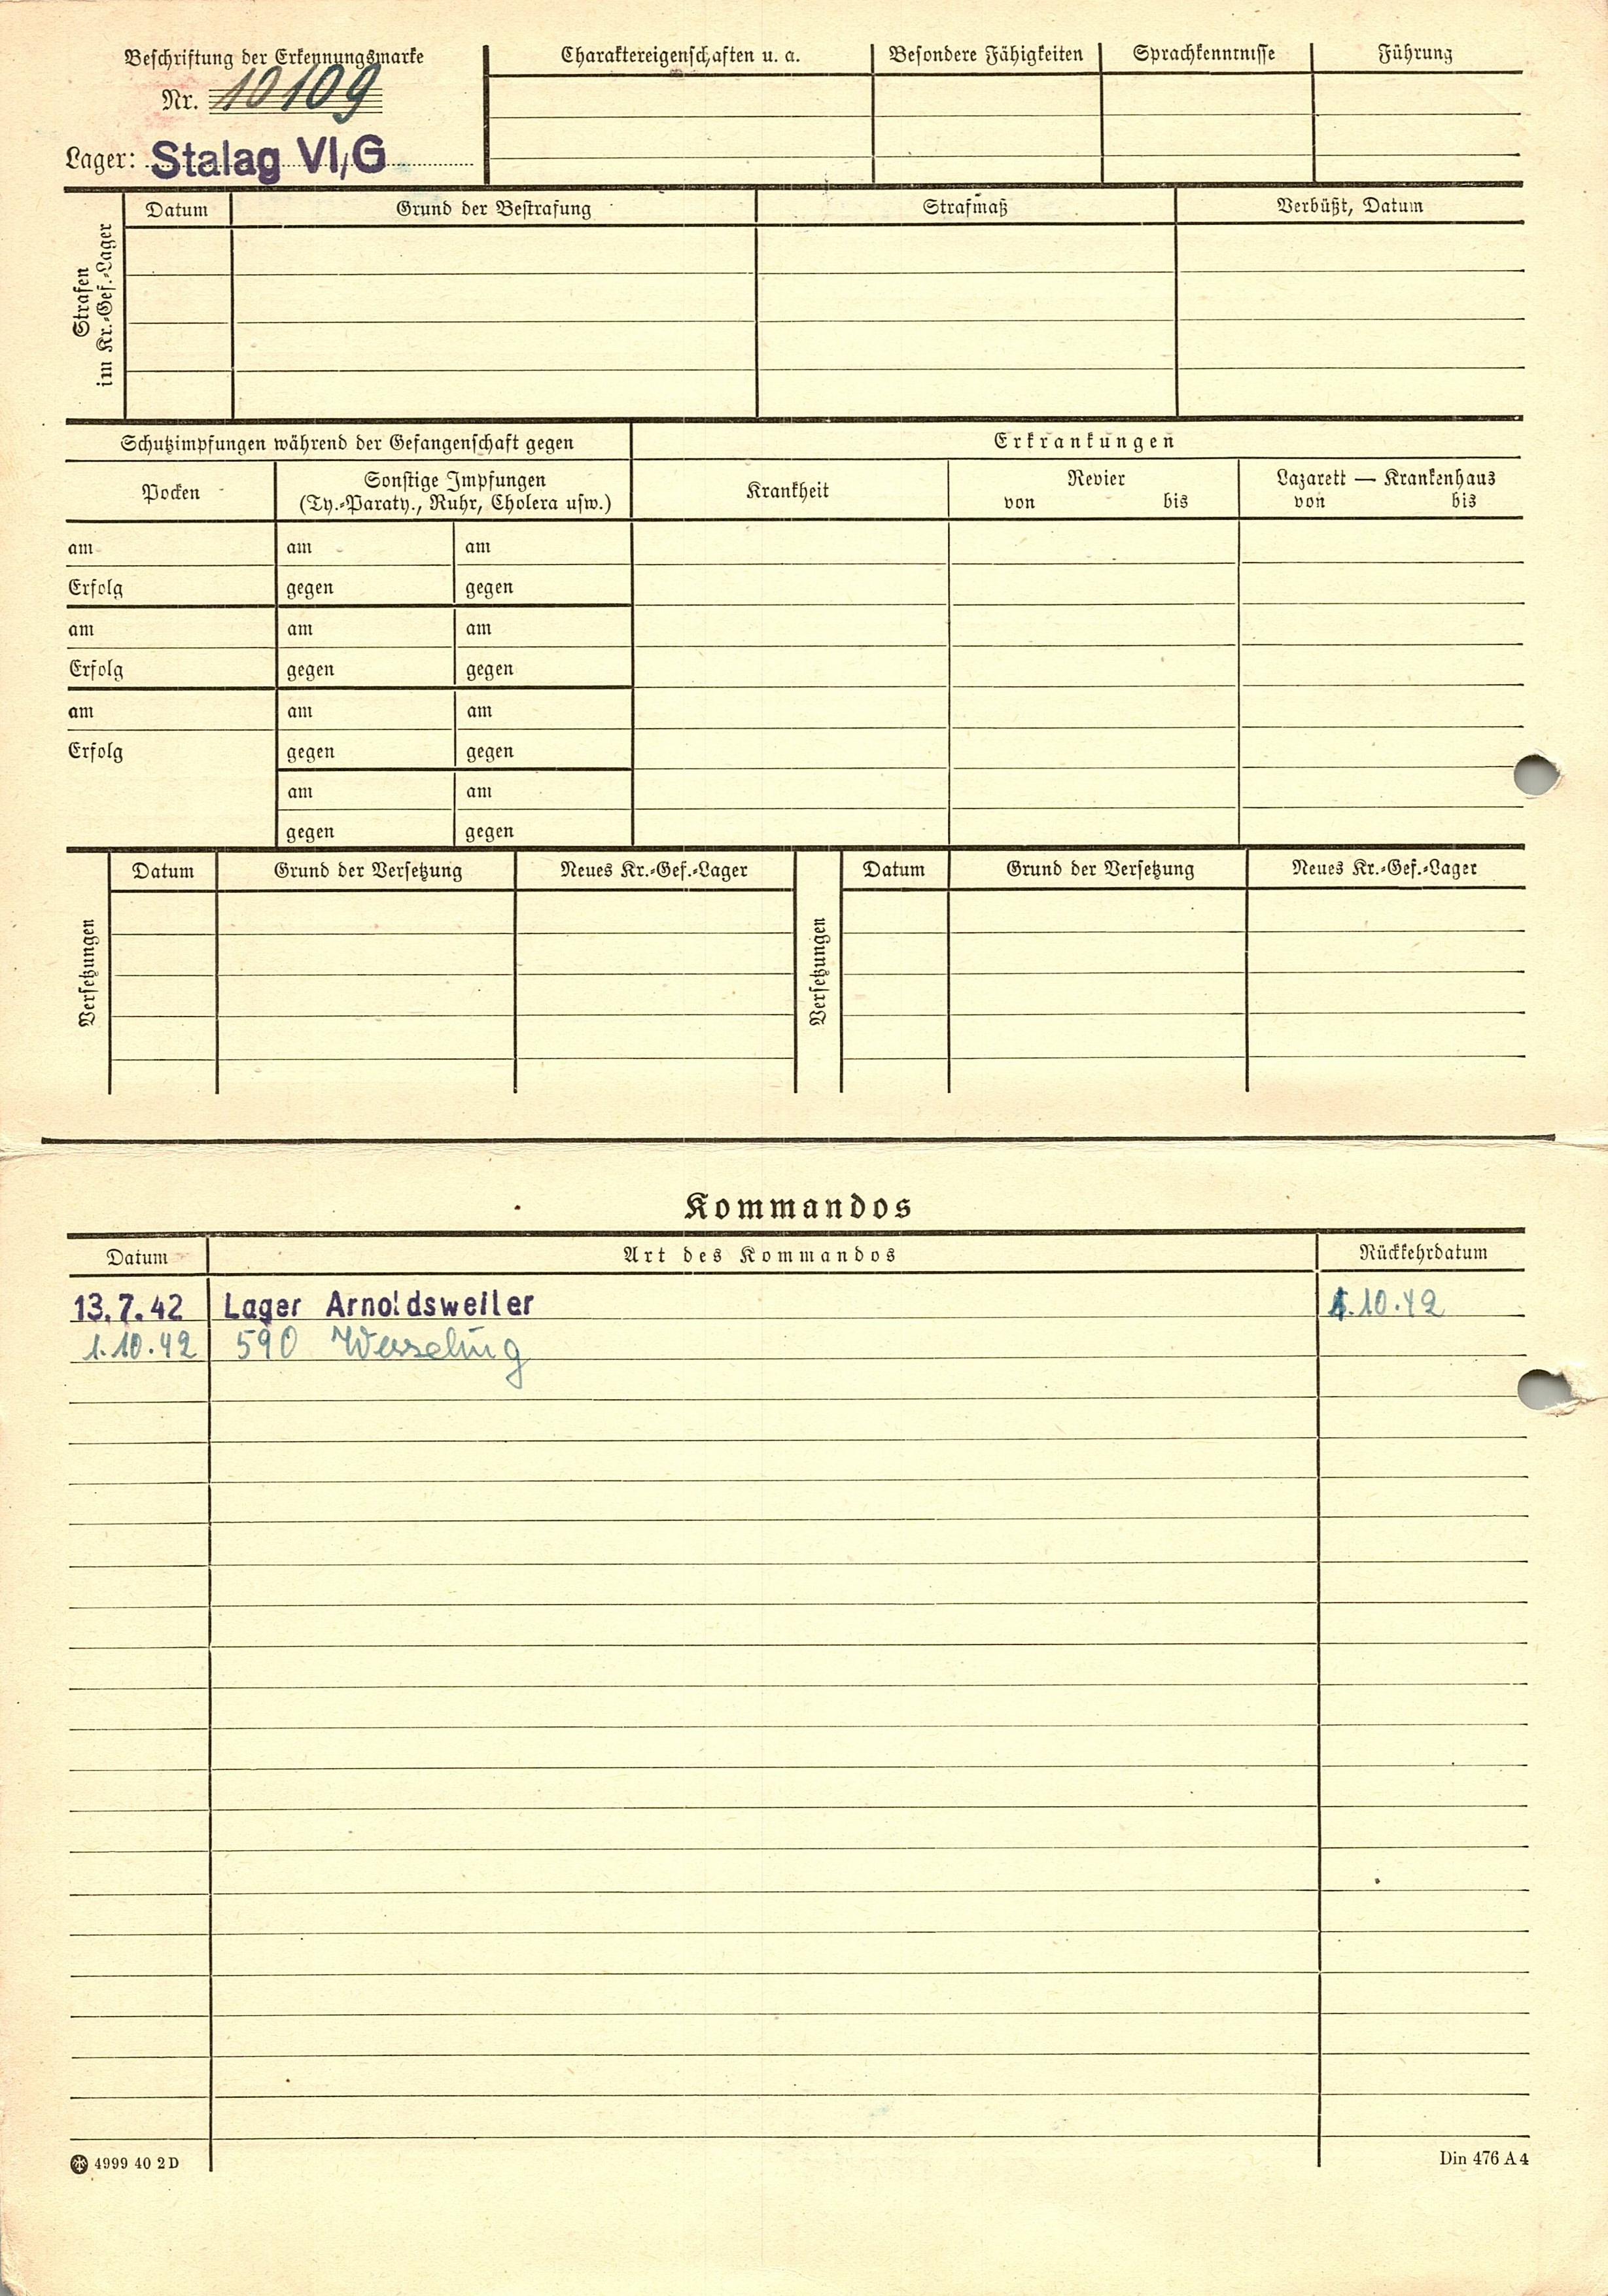 Beschriftung der Erkennungsmarke
Nr. 10109
Lager: Stalag VI/G
Charaktereigenschaften u. a.
Besondere Fähigkeiten
Sprachkenntnisse
Führung
Strafen
im Kr.-Gef.-Lager
Datum
Grund der Bestrafung
Strafmaß
Verbüßt, Datum
Schutzimpfungen während der Gefangenschaft gegen
Erkrankungen
Pocken
Sonstige Impfungen
(Ty.-Paraty., Ruhr, Cholera usw.)
Krankheit
Revier
von bis
Lazarett — Krankenhaus
von bis
am am am
Erfolg gegen gegen
am am am
Erfolg gegen gegen
am am am
Erfolg gegen gegen
am am
gegen gegen
Versetzungen
Datum
Grund der Versetzung
Neues Kr.-Gef.-Lager
Versetzungen
Datum
Grund der Versetzung
Neues Kr.-Gef.-Lager
Kommandos
Datum Art des Kommandos Rückkehrdatum
13.7.42 Lager Arnoldsweiler 1.10.42
1.10.42 590 Wesseling
4999 40 2 D
Din 476 A 4